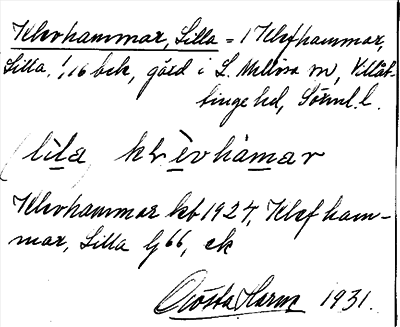 Klevhammar, Lilla = 1 Klefhammar,
Lilla, 1/16 bek, gård i L. Mellösa sn, Villåt-
tinge hd, Sörml. l.
(lila) klèvhámar
Klevhammar kb 1927, Klef ham-
mar, Lilla G 66, ek
Gösta Harm 1931.